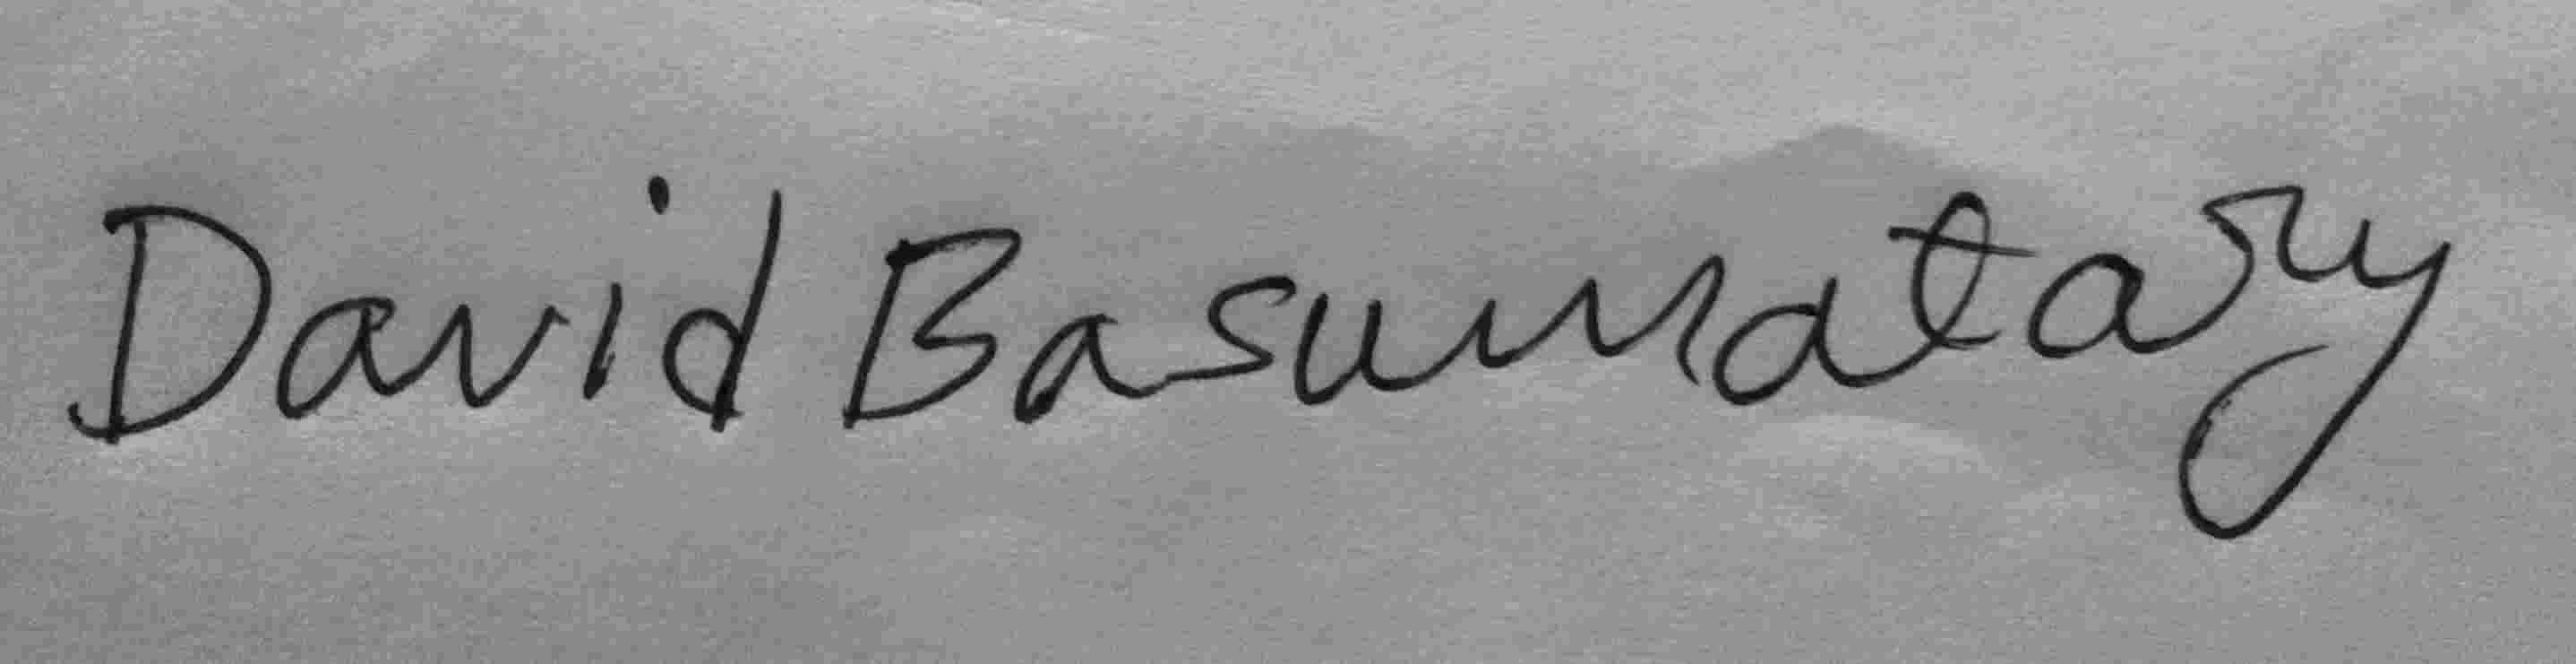 David Basumatary